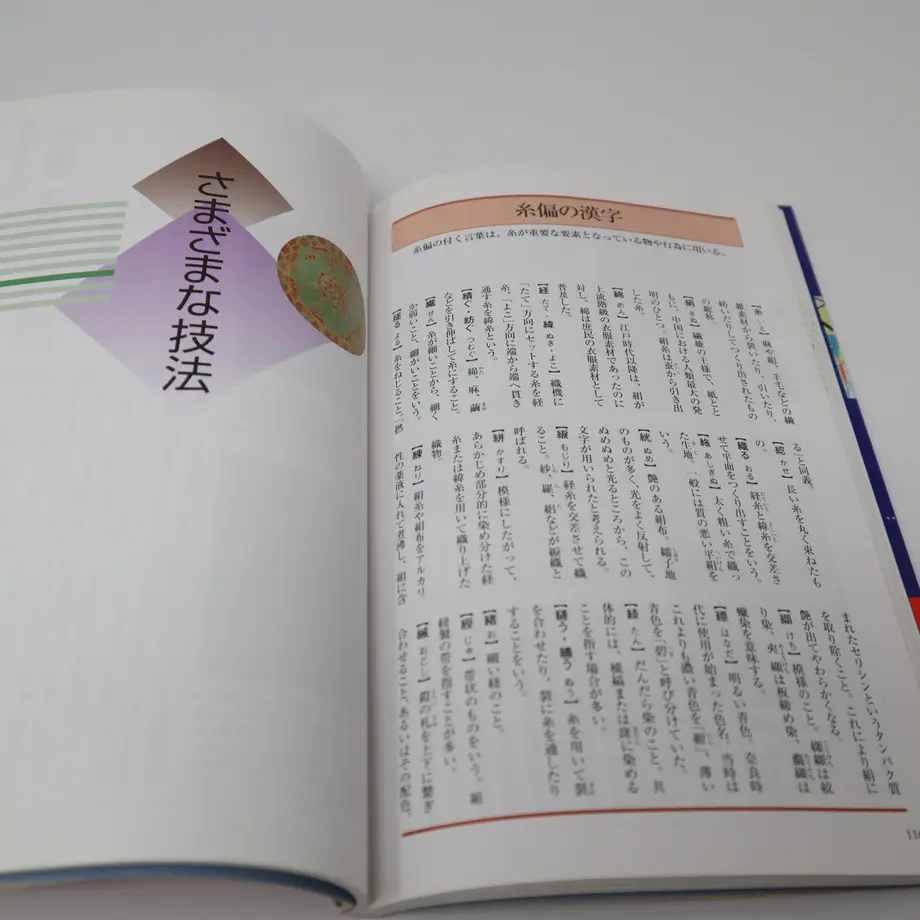 さまざまな技法
糸偏の漢字
糸偏の付く言葉は、糸が重要な要素となっている物や行為に用いる。
【糸 いと】麻や絹、羊毛などの繊
維素材から裂いたり、引いたり、
紡いだりしてつくり出されたもの
の総称。
【絹 きぬ】繊維の王様で、紙とと
もに、中国における人類最大の発
明のひとつ。絹糸は蚕から引き出
した糸。
【綿 めん】江戸時代以降は、絹が
上流階級の衣服素材であったのに
対し、綿は庶民の衣服素材として
普及した。
【経 たて・緯 ぬき・よこ】織機に
「たて」方向にセットする糸を経
糸、「よこ」方向に端から端へ貫き
通す糸を緯糸という。
【績ぐ・紡ぐ つむぐ】綿、麻、繭
などを引き伸ばして糸にすること。
【繊 せん】糸が細いことから、細く
か弱いこと、細かいことをいう。
【縒る よる】糸をねじること。「撚
る」と同義。
【綛 かせ】長い糸を丸く束ねたも
の。
【織る おる】経糸と緯糸を交差さ
せて平面をつくり出すことをいう。
【絁 あしぎぬ】太く粗い糸で織っ
た生地。一般には質の悪い平絹を
いう。
【絖 ぬめ】艶のある絹布。繻子地
のものが多く、光をよく反射して、
ぬめぬめと光るところから、この
文字が用いられたと考えられる。
【綟 もじり】経糸を交差させて織
ること。紗、羅、絽などが綟織と
呼ばれる。
【絣 かすり】模様にしたがって、
あらかじめ部分的に染め分けた経
糸または緯糸を用いて織り上げた
織物。
【練 ねり】絹糸や絹布をアルカリ
性の薬液に入れて煮沸し、絹に含
まれたセリシンというタンパク質
を取り除くこと。これにより絹に
艶が出てやわらかくなる。
【纈 けち】模様のこと。絞纈は絞
り染、夾纈は板締め染、﨟纈は
蠟染を意味する。
【縹 はなだ】明るい青色。奈良時
代に使用が始まった色名。当時は
これよりも濃い青色を「紺」、薄い
青色を「碧」と呼び分けていた。
たん】だんだら染のこと。具
体的には、横縞または斑に染める
ことを指す場合が多い。
【縫う・繡う ぬう】糸を用いて裂
を合わせたり、裂に糸を通したり
することをいう。
【緒 お】細い紐のこと。
【綬 じゅ】帯状のものをいう。組
紐製の帯を指すことが多い。
【縅 おどし】鎧の札を上下に繋ぎ
合わせること、あるいはその配色。